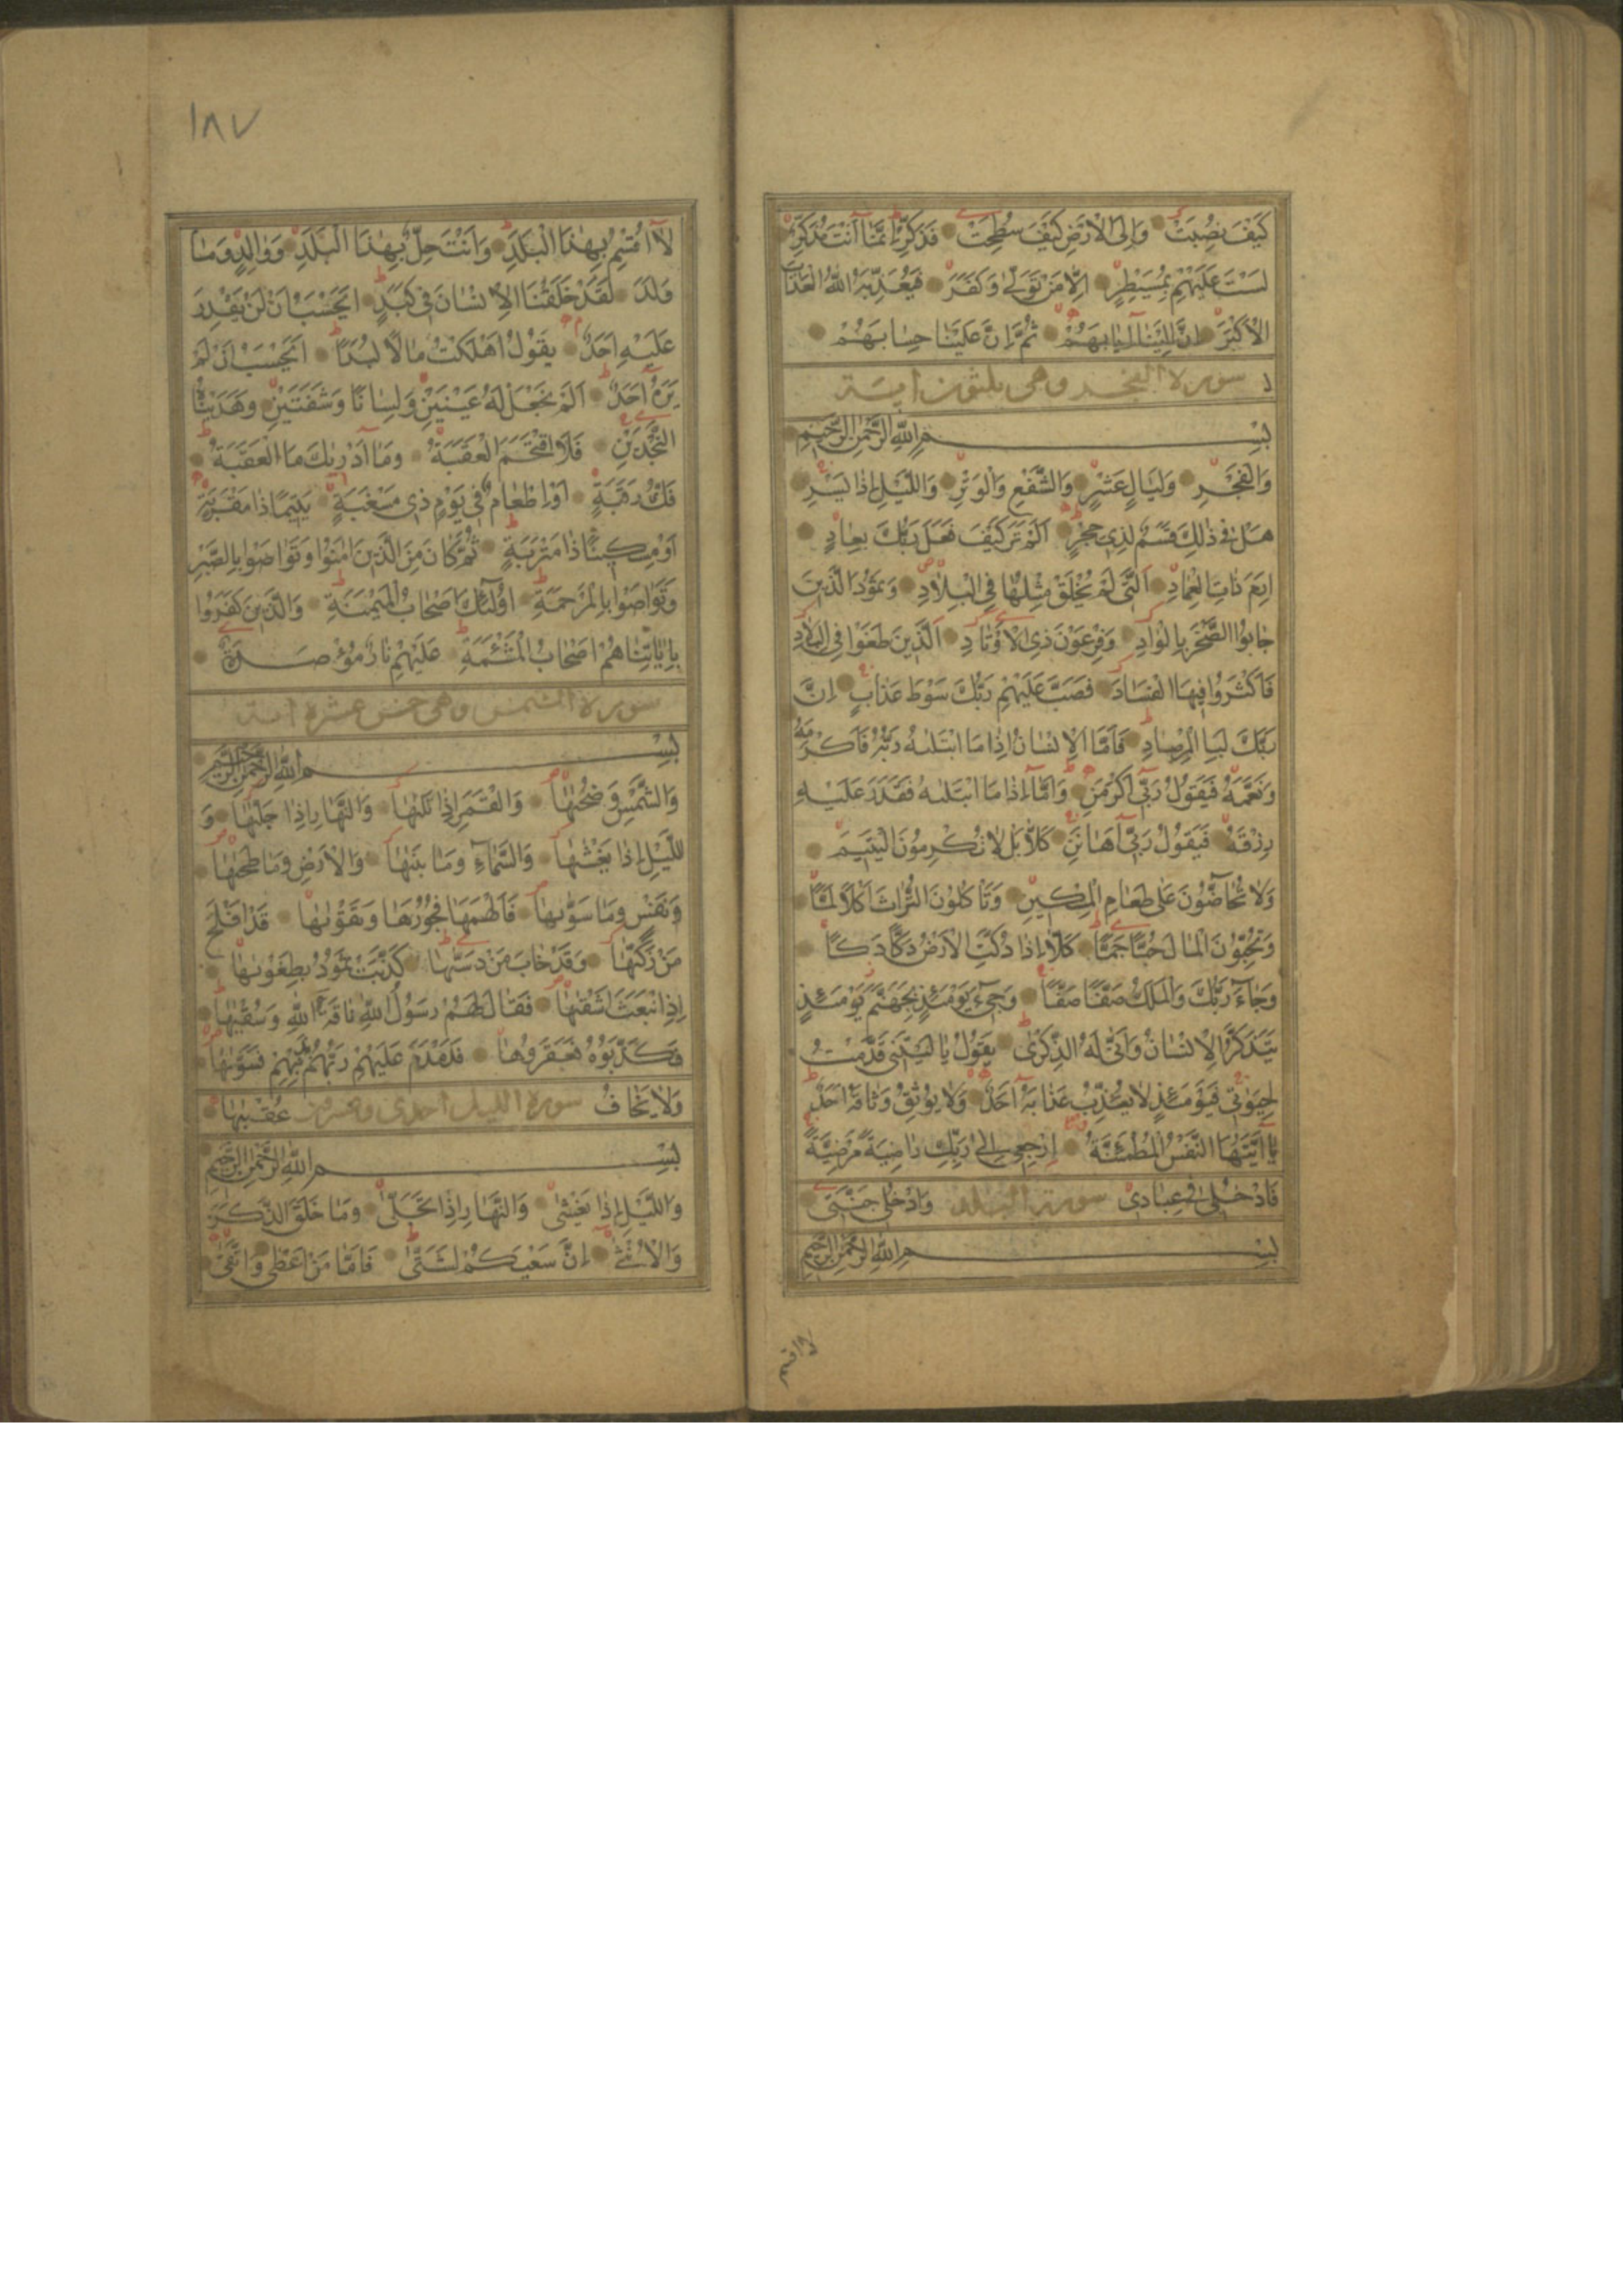 كَيْفَ نُصِبَتْ وَاِلَى الْاَرْضِ كَيْفَ سُطِحَتْ فَذَكِّرْ اِنَّمَا اَنْتَ مُذَكِّرٌ
لَسْتَ عَلَيْهِمْ بِمُسَيْطِرٍ اِلَّا مَنْ تَوَلّٰى وَكَفَرَ فَيُعَذِّبُهُ اللّٰهُ الْعَذَابَ
الْاَكْبَرَ اِنَّ اِلَيْنَا اِيَابَهُمْ ثُمَّ اِنَّ عَلَيْنَا حِسَابَهُمْ
سورة الفجر وهى ثلثون اية
بِسْمِ اللّٰهِ الرَّحْمٰنِ الرَّحِيْمِ
وَالْفَجْرِ وَلَيَالٍ عَشْرٍ وَالشَّفْعِ وَالْوَتْرِ وَاللَّيْلِ اِذَا يَسْرِ
هَلْ فِى ذٰلِكَ قَسَمٌ لِذِى حِجْرٍ اَلَمْ تَرَ كَيْفَ فَعَلَ رَبُّكَ بِعَادٍ
اِرَمَ ذَاتِ الْعِمَادِ اَلَّتِى لَمْ يُخْلَقْ مِثْلُهَا فِى الْبِلَادِ وَثَمُوْدَ الَّذِيْنَ
جَابُوا الصَّخْرَ بِالْوَادِ وَفِرْعَوْنَ ذِى الْاَوْتَادِ اَلَّذِيْنَ طَغَوْا فِى الْبِلَادِ
فَاَكْثَرُوا فِيْهَا الْفَسَادَ فَصَبَّ عَلَيْهِمْ رَبُّكَ سَوْطَ عَذَابٍ اِنَّ
رَبَّكَ لَبِالْمِرْصَادِ فَاَمَّا الْاِنْسَانُ اِذَا مَا ابْتَلٰيهُ رَبُّهُ فَاَكْرَمَهُ
وَنَعَّمَهُ فَيَقُوْلُ رَبِّى اَكْرَمَنِ وَاَمَّا اِذَا مَا ابْتَلٰيهُ فَقَدَرَ عَلَيْهِ
رِزْقَهُ فَيَقُوْلُ رَبِّى اَهَانَنِ كَلَّا بَلْ لَا تُكْرِمُوْنَ الْيَتِيْمَ
وَلَا تَحَاضُّوْنَ عَلٰى طَعَامِ الْمِسْكِيْنِ وَتَأْكُلُوْنَ التُّرَاثَ اَكْلًا لَمًّا
وَتُحِبُّوْنَ الْمَالَ حُبًّا جَمًّا كَلَّا اِذَا دُكَّتِ الْاَرْضُ دَكًّا دَكًّا
وَجَاءَ رَبُّكَ وَالْمَلَكُ صَفًّا صَفًّا وَجِىءَ يَوْمَئِذٍ بِجَهَنَّمَ يَوْمَئِذٍ
يَتَذَكَّرُ الْاِنْسَانُ وَاَنّٰى لَهُ الذِّكْرٰى يَقُوْلُ يَا لَيْتَنِى قَدَّمْتُ
لِحَيٰوتِى فَيَوْمَئِذٍ لَا يُعَذِّبُ عَذَابَهُ اَحَدٌ وَلَا يُوْثِقُ وَثَاقَهُ اَحَدٌ
يَا اَيَّتُهَا النَّفْسُ الْمُطْمَئِنَّةُ اِرْجِعِى اِلٰى رَبِّكِ رَاضِيَةً مَرْضِيَّةً
فَادْخُلِى فِى عِبَادِى سورة البلد وَادْخُلِى جَنَّتِى
بِسْمِ اللّٰهِ الرَّحْمٰنِ الرَّحِيْمِ
لا اقسم
١٨٧
لَا اُقْسِمُ بِهٰذَا الْبَلَدِ وَاَنْتَ حِلٌّ بِهٰذَا الْبَلَدِ وَوَالِدٍ وَمَا
وَلَدَ لَقَدْ خَلَقْنَا الْاِنْسَانَ فِى كَبَدٍ اَيَحْسَبُ اَنْ لَنْ يَقْدِرَ
عَلَيْهِ اَحَدٌ يَقُوْلُ اَهْلَكْتُ مَالًا لُبَدًا اَيَحْسَبُ اَنْ لَمْ
يَرَهُ اَحَدٌ اَلَمْ نَجْعَلْ لَهُ عَيْنَيْنِ وَلِسَانًا وَشَفَتَيْنِ وَهَدَيْنَاهُ
النَّجْدَيْنِ فَلَا اقْتَحَمَ الْعَقَبَةَ وَمَا اَدْرٰيكَ مَا الْعَقَبَةُ
فَكُّ رَقَبَةٍ اَوْ اِطْعَامٌ فِى يَوْمٍ ذِى مَسْغَبَةٍ يَتِيْمًا ذَا مَقْرَبَةٍ
اَوْ مِسْكِيْنًا ذَا مَتْرَبَةٍ ثُمَّ كَانَ مِنَ الَّذِيْنَ اٰمَنُوْا وَتَوَاصَوْا بِالصَّبْرِ
وَتَوَاصَوْا بِالْمَرْحَمَةِ اُولٰئِكَ اَصْحَابُ الْمَيْمَنَةِ وَالَّذِيْنَ كَفَرُوا
بِاٰيَاتِنَا هُمْ اَصْحَابُ الْمَشْئَمَةِ عَلَيْهِمْ نَارٌ مُؤْصَدَةٌ
سورة الشمس وهى خمس عشرة اية
بِسْمِ اللّٰهِ الرَّحْمٰنِ الرَّحِيْمِ
وَالشَّمْسِ وَضُحٰيهَا وَالْقَمَرِ اِذَا تَلٰيهَا وَالنَّهَارِ اِذَا جَلّٰيهَا وَ
اللَّيْلِ اِذَا يَغْشٰيهَا وَالسَّمَاءِ وَمَا بَنٰيهَا وَالْاَرْضِ وَمَا طَحٰيهَا
وَنَفْسٍ وَمَا سَوّٰيهَا فَاَلْهَمَهَا فُجُوْرَهَا وَتَقْوٰيهَا قَدْ اَفْلَحَ
مَنْ زَكّٰيهَا وَقَدْ خَابَ مَنْ دَسّٰيهَا كَذَّبَتْ ثَمُوْدُ بِطَغْوٰيهَا
اِذِ انْبَعَثَ اَشْقٰيهَا فَقَالَ لَهُمْ رَسُوْلُ اللّٰهِ نَاقَةَ اللّٰهِ وَسُقْيٰهَا
فَكَذَّبُوْهُ فَعَقَرُوْهَا فَدَمْدَمَ عَلَيْهِمْ رَبُّهُمْ بِذَنْبِهِمْ فَسَوّٰيهَا
وَلَا يَخَافُ سورة الليل احدى وعشرون عُقْبٰيهَا
بِسْمِ اللّٰهِ الرَّحْمٰنِ الرَّحِيْمِ
وَاللَّيْلِ اِذَا يَغْشٰى وَالنَّهَارِ اِذَا تَجَلّٰى وَمَا خَلَقَ الذَّكَرَ
وَالْاُنْثٰى اِنَّ سَعْيَكُمْ لَشَتّٰى فَاَمَّا مَنْ اَعْطٰى وَاتَّقٰى